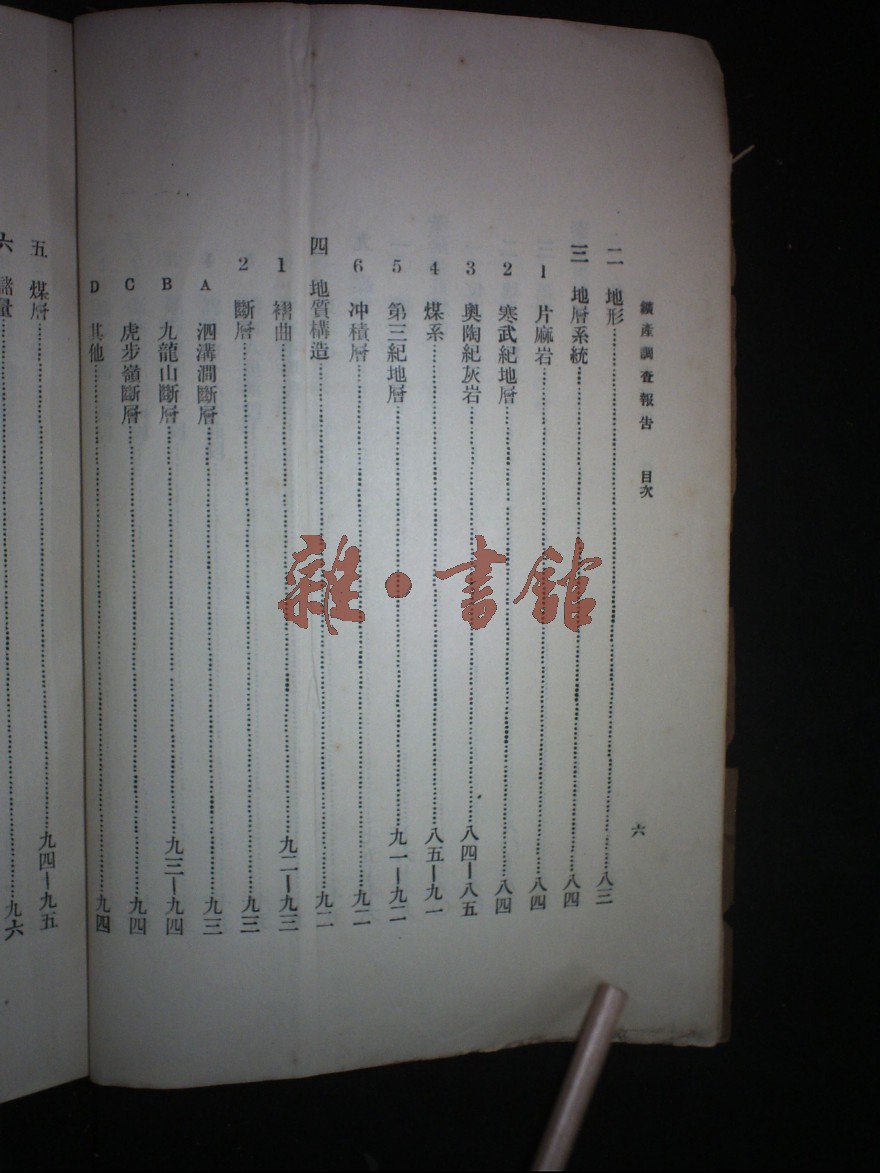 鑛產調查報告 目次 六
二 地形……八三
三 地層系統……八四
1 片麻岩……八四
2 寒武紀地層……八四
3 奧陶紀灰岩……八四—八五
4 煤系……八五—九一
5 第三紀地層……九一—九二
6 冲積層……九二
四 地質構造……九二
1 褶曲……九二—九三
2 斷層……九三
A 泗溝澗斷層……九三
B 九龍山斷層……九三—九四
C 虎步嶺斷層……九四
D 其他……九四
五 煤層……九四—九五
六 儲量……九六
雜·書館